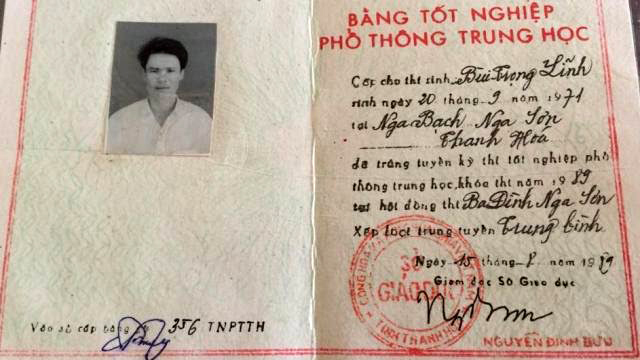 BẰNG TỐT NGHIỆP
PHỔ THÔNG TRUNG HỌC
Cấp cho thí sinh Bùi Trọng Lĩnh
sinh ngày 20 tháng 9 năm 1971
tại Nga Bạch Nga Sơn
Thanh Hoá
đã trúng tuyển kỳ thi tốt nghiệp phổ
thông trung học, khóa thi năm 1989
tại hội đồng thi Ba Đình Nga Sơn
Xếp loại trúng tuyển Trung bình
Ngày 15 tháng 8 năm 1989
Giám đốc Sở Giáo dục
SỞ
GIÁO DỤC
TỈNH THANH HOÁ
NGUYỄN ĐÌNH BƯU
Vào sổ cấp bằng số 356 TNPTTH